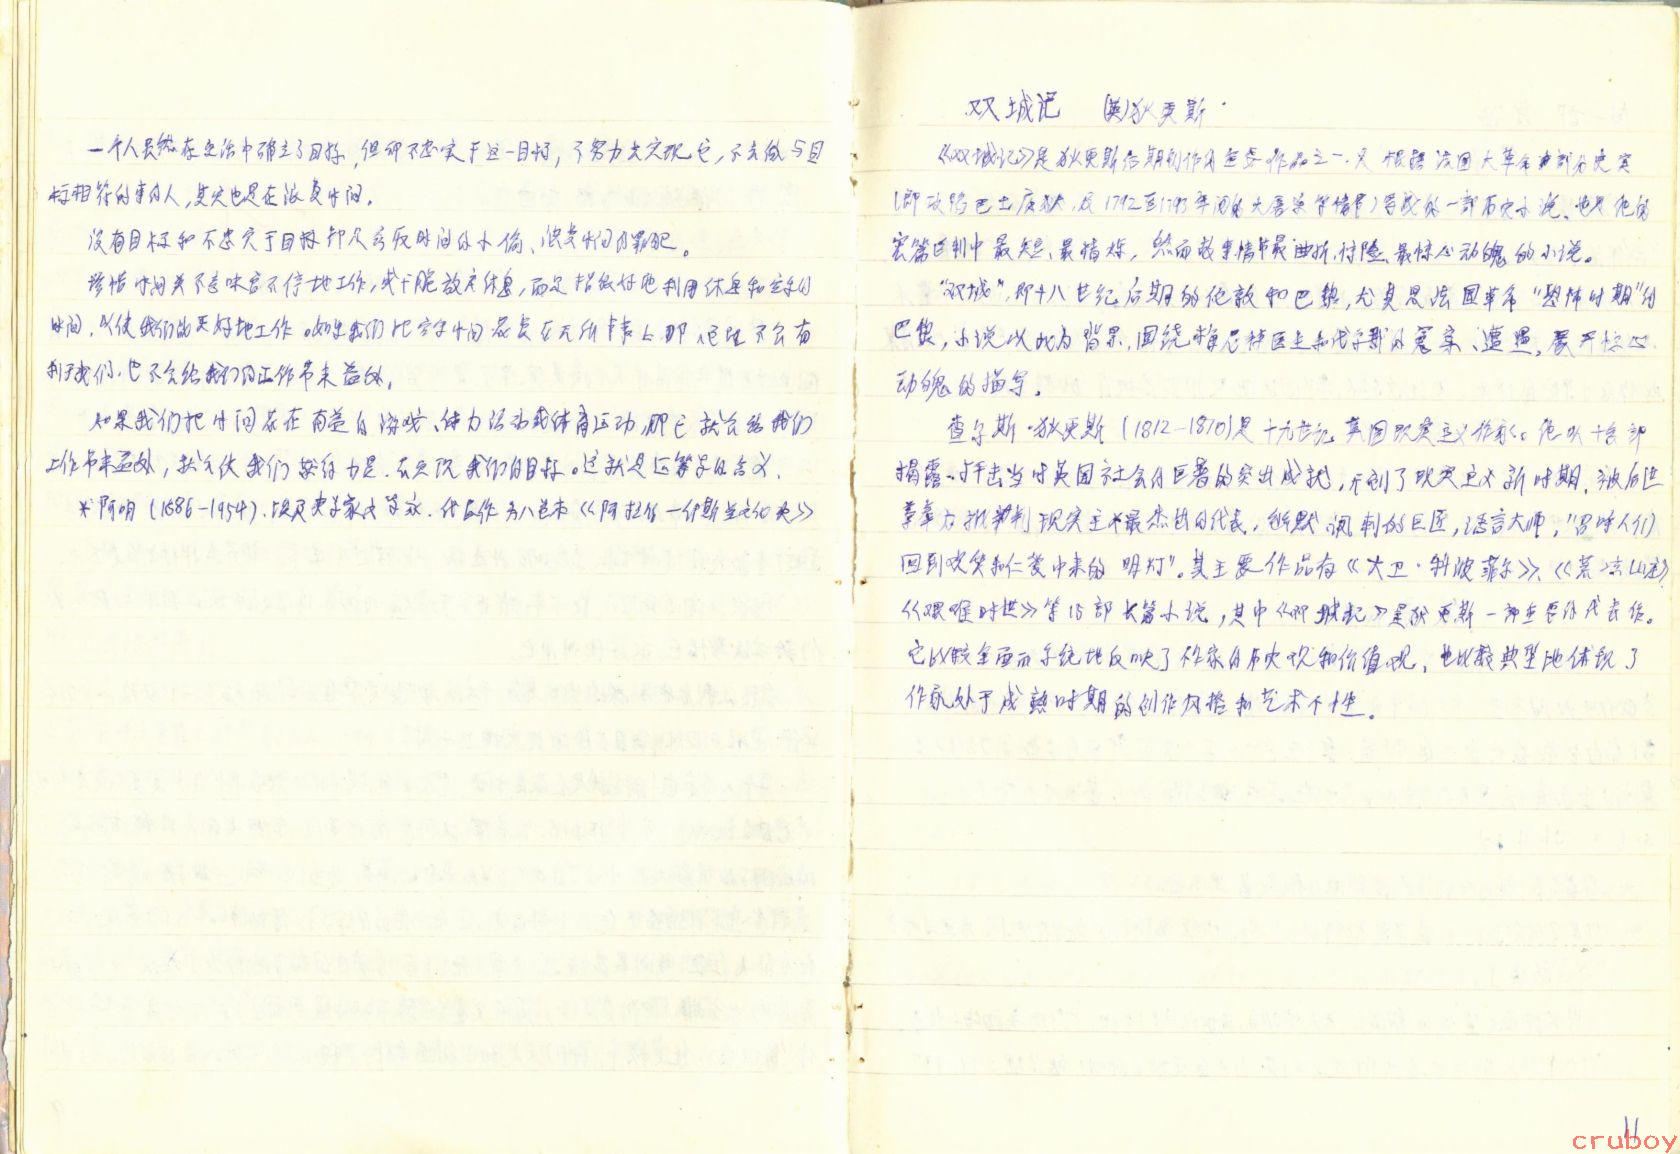 一个人虽然在生活中确立了目标,但却不忠实于这一目标,不努力去实现它,不去做与目
标相符的事的人,其实也是在浪费时间。
没有目标和不忠实于目标都是盗取时间的小偷、浪费时间的罪犯。
珍惜时间并不意味着不停地工作,或干脆放弃休息,而是指很好地利用休息和空闲的
时间,以使我们能更好地工作。如果我们把空闲时间花费在无所事事上,那它既不会有
利于我们,也不会给我们的工作带来益处。
如果我们把时间花在有益的游戏、体力活动或体育运动,那它就会给我们
工作带来益处,就会使我们更好力量去实现我们的目标。这就是运筹学的含义。
艾阿明(1886-1954),埃及史学家或作家,代表作为八卷本《阿拉伯-伊斯兰文化史》
双城记 (英)狄更斯.
《双城记》是狄更斯后期创作的重要作品之一,是根据法国大革命中部分史实
(即攻陷巴士底狱,及1792至1793年间的大屠杀等情节)写成的一部历史小说,也是他的
宏篇巨制中最短、最精炼,然而故事情节最曲折、惊险、最惊心动魄的小说。
"双城",即十八世纪后期的伦敦和巴黎,尤其是法国革命"恐怖时期"的
巴黎,小说以此为背景,围绕梅尼特医生和代尔那的冤案、遭遇,展开惊心
动魄的描写。
查尔斯·狄更斯(1812-1870)是十九世纪英国现实主义作家。他以十多部
揭露、抨击当时英国社会的巨著的突出成就,开创了现实主义新时期,被后世
尊为批判现实主义最杰出的代表,幽默、讽刺的巨匠,语言大师,"召呼人们
回到欢笑和仁爱中来的明灯"。其主要作品有《大卫·科波菲尔》、《荒凉山庄》
《艰难时世》等15部长篇小说,其中《双城记》是狄更斯一部重要的代表作。
它比较全面而系统地反映了作家的历史观和价值观,也比较典型地体现了
作家处于成熟时期的创作风格和艺术个性。
11
cruboy